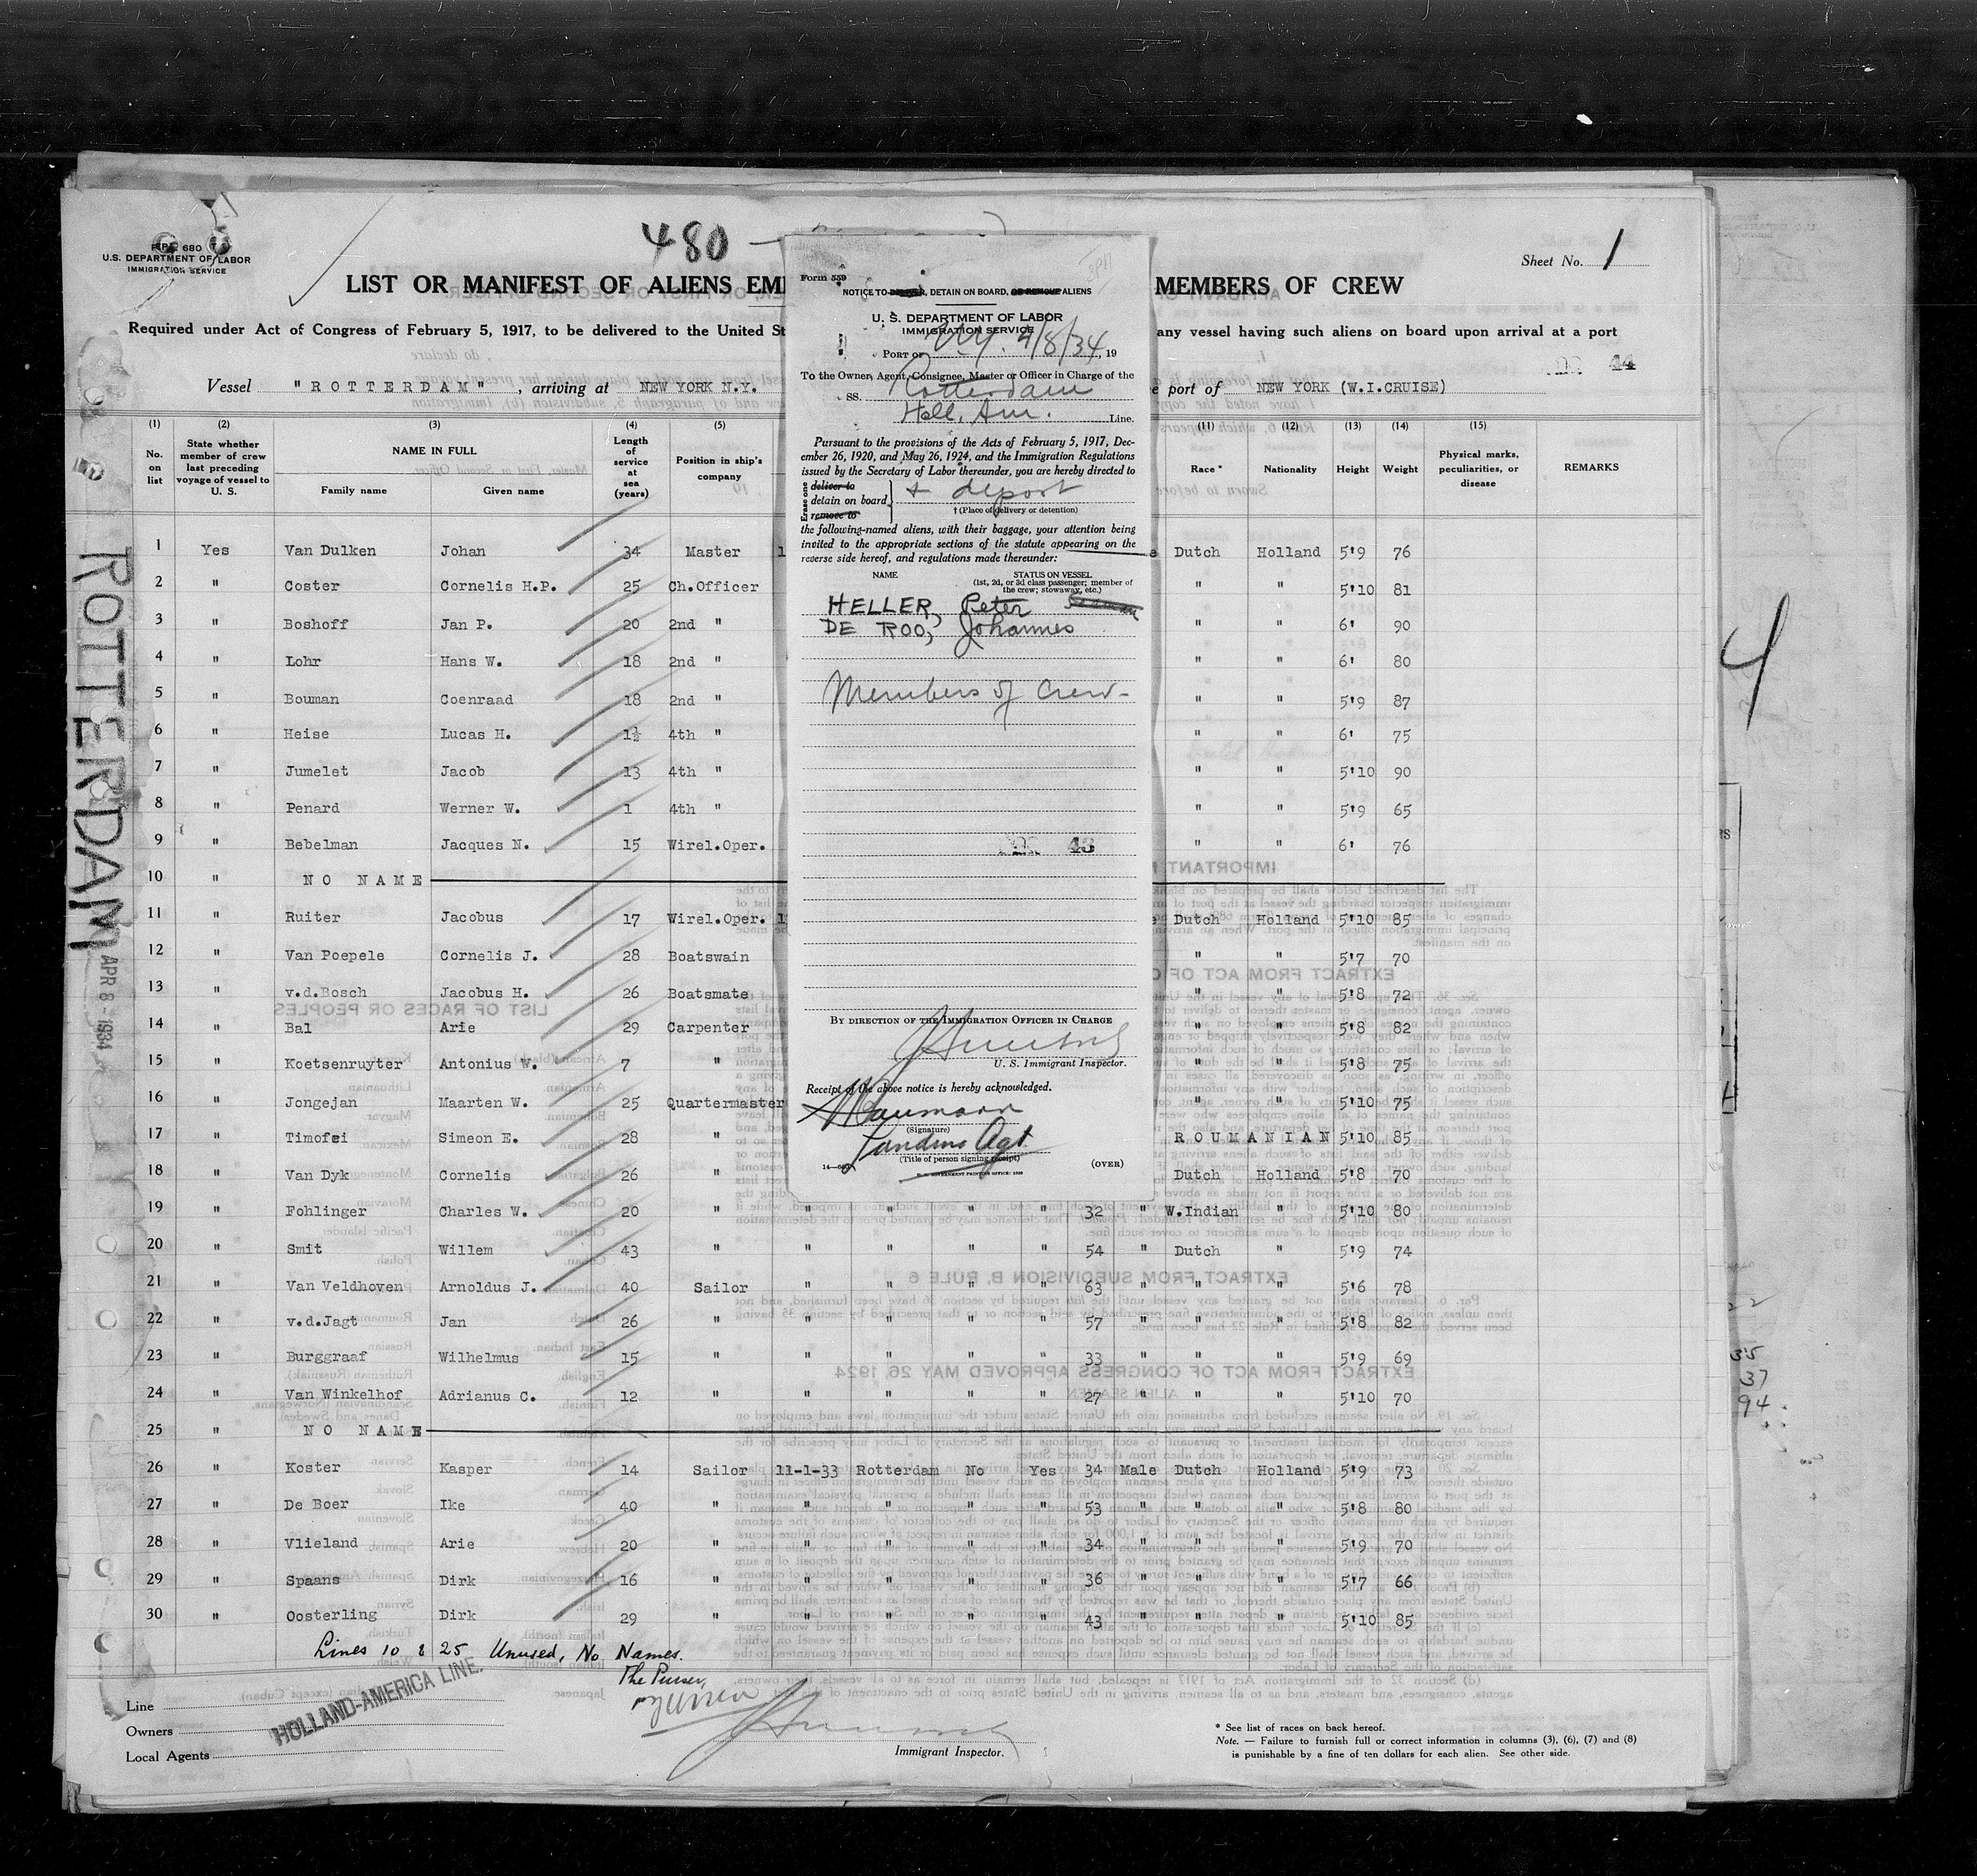 480
Sheet No. 1
FORM 680
U.S. DEPARTMENT OF LABOR
IMMIGRATION SERVICE
LIST OR MANIFEST OF ALIENS EM
MEMBERS OF CREW
Required under Act of Congress of February 5, 1917, to be delivered to the United St
any vessel having such aliens on board upon arrival at a port
Vessel "ROTTERDAM", arriving at NEW YORK N.Y.
port of NEW YORK (W.I.CRUISE)
44
(1) (2) (3) (4) (5) (11) (12) (13) (14) (15)
No. on list
State whether member of crew last preceding voyage of vessel to U. S.
NAME IN FULL
Family name Given name
Length of service at sea (years)
Position in ship's company
Race * Nationality Height Weight
Physical marks, peculiarities, or disease
REMARKS
1 Yes Van Dulken Johan 34 Master Dutch Holland 5'9 76
2 " Coster Cornelis H.P. 25 Ch.Officer " " 5'10 81
3 " Boshoff Jan P. 20 2nd " " " 6' 90
4 " Lohr Hans W. 18 2nd " " " 6' 80
5 " Bouman Coenraad 18 2nd " " " 5'9 87
6 " Heise Lucas H. 1½ 4th " " " 6' 75
7 " Jumelet Jacob 13 4th " " " 5'10 90
8 " Penard Werner W. 1 4th " " " 5'9 65
9 " Bebelman Jacques N. 15 Wirel.Oper. " " 6' 76
10 " NO NAME
11 " Ruiter Jacobus 17 Wirel.Oper. Dutch Holland 5'10 85
12 " Van Poepele Cornelis J. 28 Boatswain " " 5'7 70
13 " v.d.Bosch Jacobus H. 26 Boatsmate " " 5'8 72
14 " Bal Arie 29 Carpenter " " 5'8 82
15 " Koetsenruyter Antonius W. 7 " " " 5'8 75
16 " Jongejan Maarten W. 25 Quartermaster " " 5'10 75
17 " Timofei Simeon E. 28 " ROUMANIAN 5'10 85
18 " Van Dyk Cornelis 26 " Dutch Holland 5'8 70
19 " Fohlinger Charles W. 20 " " " " " 32 " W.Indian " 5'10 80
20 " Smit Willem 43 " " " " " 54 " Dutch " 5'9 74
21 " Van Veldhoven Arnoldus J. 40 Sailor " " " " 63 " " " 5'6 78
22 " v.d.Jagt Jan 26 " " " " " 57 " " " 5'8 82
23 " Burggraaf Wilhelmus 15 " " " " " 33 " " " 5'9 69
24 " Van Winkelhof Adrianus C. 12 " " " " " 27 " " " 5'10 70
25 " NO NAME
26 " Koster Kasper 14 Sailor 11-1-33 Rotterdam No Yes 34 Male Dutch Holland 5'9 73
27 " De Boer Ike 40 " " " " " 53 " " " 5'8 80
28 " Vlieland Arie 20 " " " " " 34 " " " 5'9 70
29 " Spaans Dirk 16 " " " " " 36 " " " 5'7 66
30 " Oosterling Dirk 29 " " " " " 43 " " " 5'10 85
Lines 10 & 25 Unused, No Names.
The Purser,
Line
Owners
Local Agents
HOLLAND-AMERICA LINE.
Immigrant Inspector.
* See list of races on back hereof.
Note. — Failure to furnish full or correct information in columns (3), (6), (7) and (8)
is punishable by a fine of ten dollars for each alien. See other side.
ROTTERDAM
APR 8 - 1934
Form 559
NOTICE TO DELIVER, DETAIN ON BOARD, OR REMOVE ALIENS
U. S. DEPARTMENT OF LABOR
IMMIGRATION SERVICE
PORT OF N.Y. 4/8/34, 19
To the Owner, Agent, Consignee, Master or Officer in Charge of the
SS. Rotterdam
Holl. Am. Line.
Pursuant to the provisions of the Acts of February 5, 1917, Dec-
ember 26, 1920, and May 26, 1924, and the Immigration Regulations
issued by the Secretary of Labor thereunder, you are hereby directed to
Erase one
deliver to
detain on board + deport
remove to
† (Place of delivery or detention)
the following-named aliens, with their baggage, your attention being
invited to the appropriate sections of the statute appearing on the
reverse side hereof, and regulations made thereunder:
NAME STATUS ON VESSEL
(1st, 2d, or 3d class passenger; member of
the crew; stowaway, etc.)
HELLER, Peter
DE ROO, Johannes
Members of Crew -
43
BY DIRECTION OF THE IMMIGRATION OFFICER IN CHARGE
U. S. Immigrant Inspector.
Receipt of the above notice is hereby acknowledged.
(Signature)
Landing Agt.
(Title of person signing receipt)
(OVER)
4
35
37
94